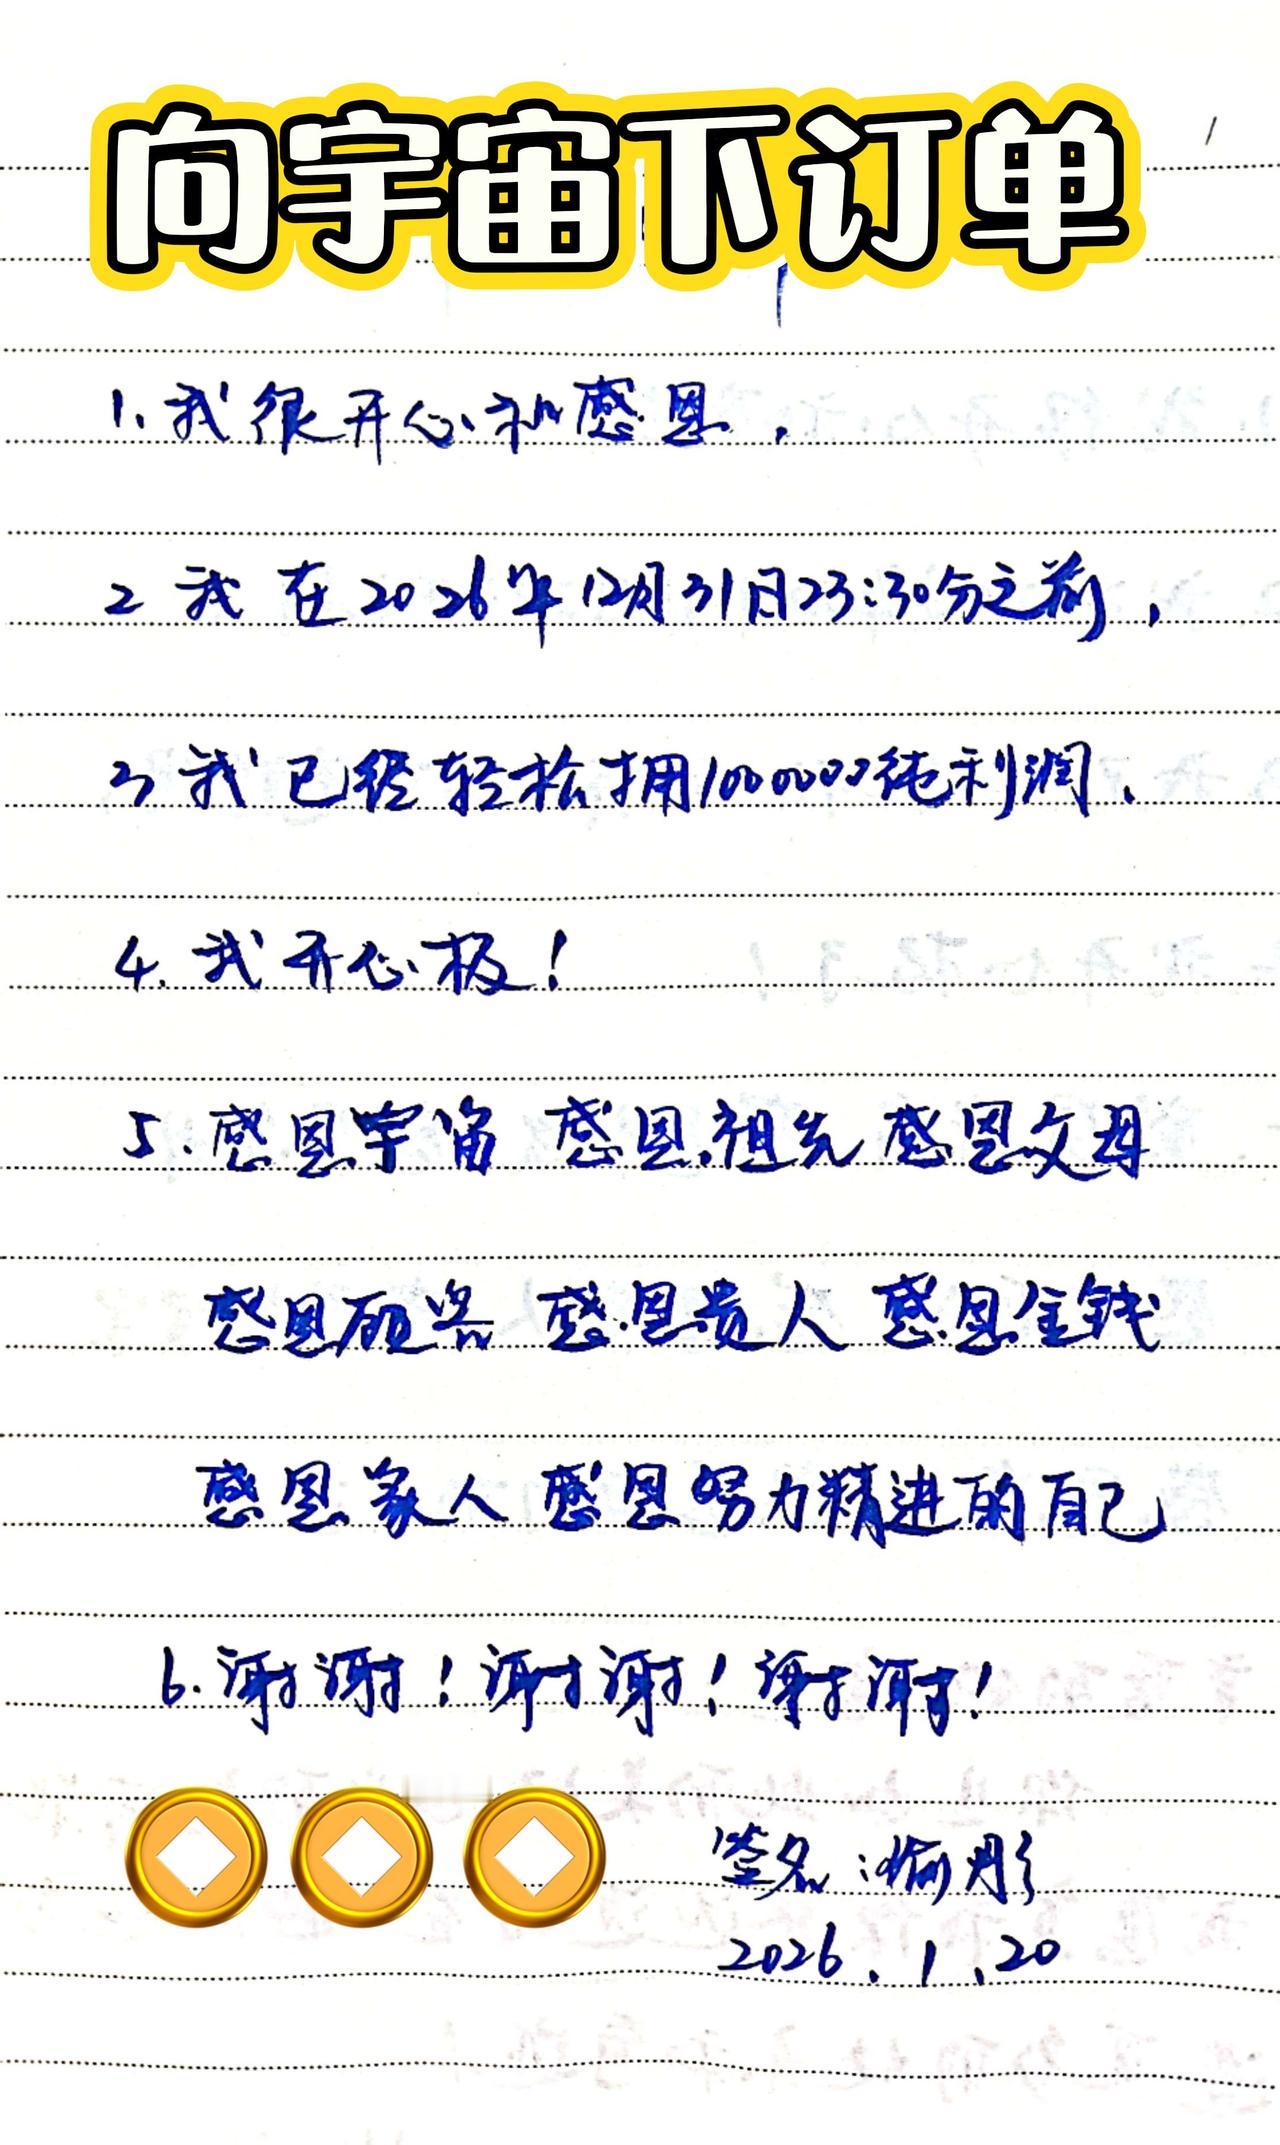 向宇宙下订单
1.我很开心和感恩.
2 我在2026年12月31日23:30分之前,
3 我已经轻松拥1000000纯利润.
4.我开心极!
5.感恩宇宙 感恩祖先 感恩父母
感恩顾客 感恩贵人 感恩金钱
感恩家人 感恩努力精进的自己
6.谢谢!谢谢!谢谢!
签名:
2026.1.20